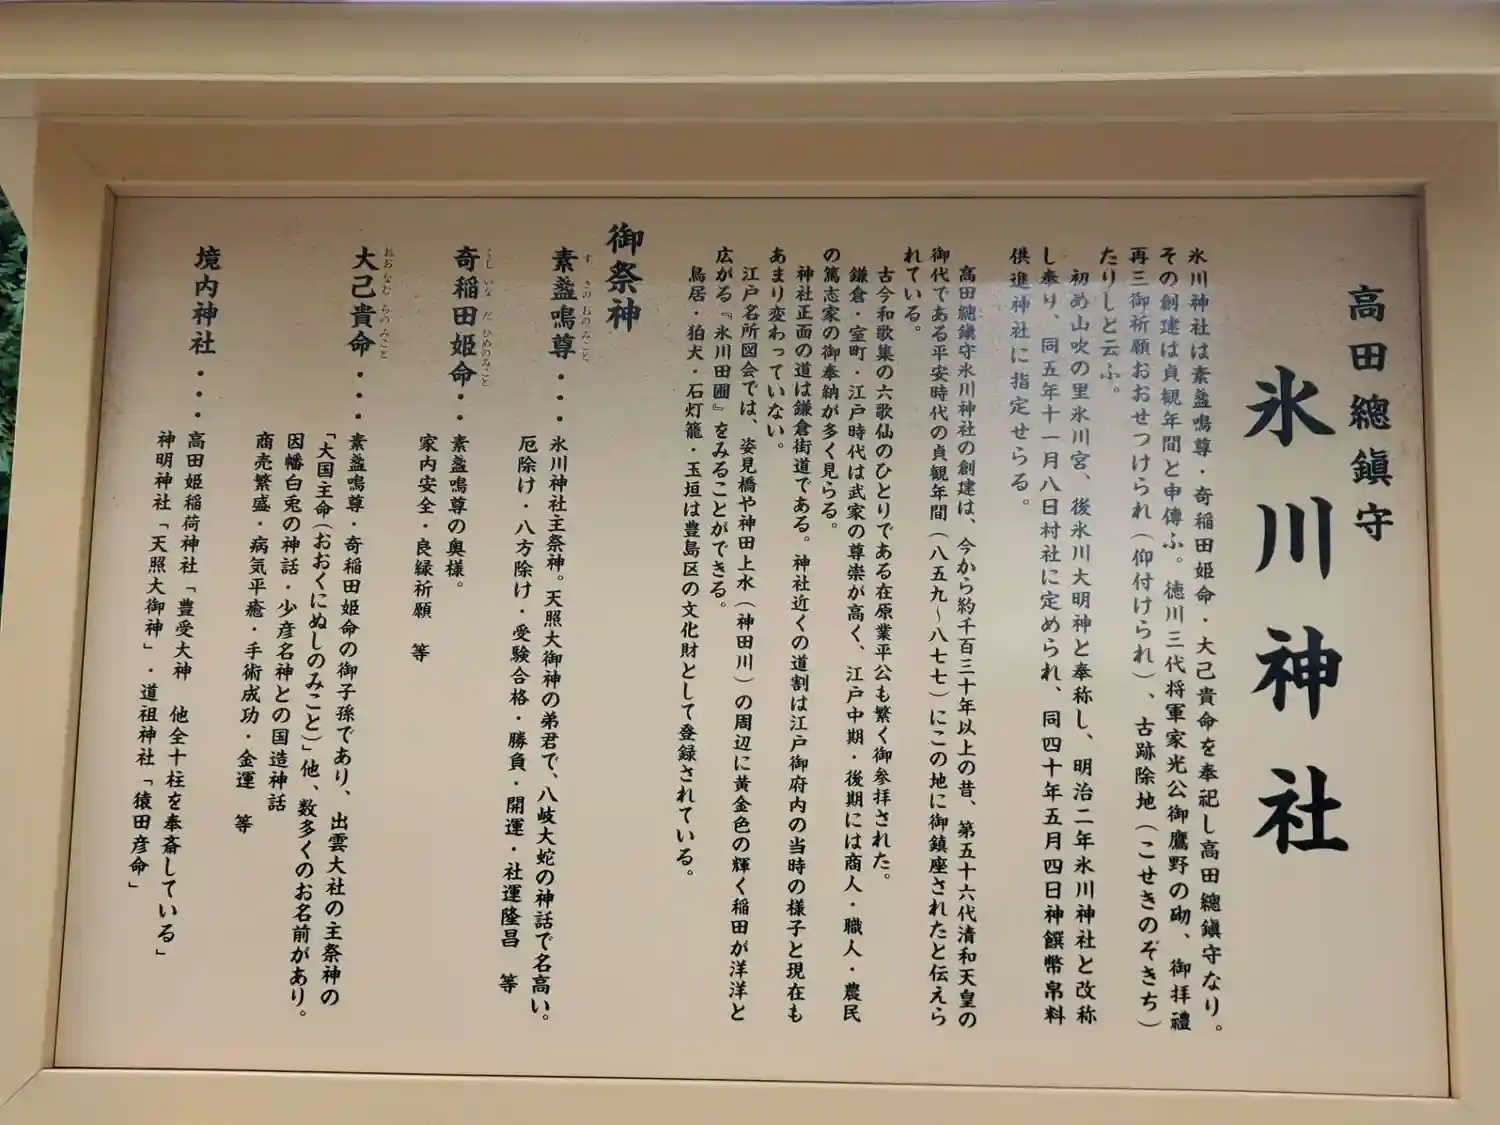 高田總鎭守
氷川神社
氷川神社は素盞鳴尊・奇稲田姫命・大己貴命を奉祀し高田總鎭守なり。
その創建は貞観年間と申傳ふ。徳川三代将軍家光公御鷹野の砌、御拝禮
再三御祈願おおせつけられ（仰付けられ）、古跡除地（こせきのぞきち）
たりしと云ふ。
初め山吹の里氷川宮、後氷川大明神と奉称し、明治二年氷川神社と改称
し奉り、同五年十一月八日村社に定められ、同四十年五月四日神饌幣帛料
供進神社に指定せらる。
高田總鎭守氷川神社の創建は、今から約千百三十年以上の昔、第五十六代清和天皇の
御代である平安時代の貞観年間（八五九～八七七）にこの地に御鎮座されたと伝えら
れている。
古今和歌集の六歌仙のひとりである在原業平公も繁く御参拝された。
鎌倉・室町・江戸時代は武家の尊崇が高く、江戸中期・後期には商人・職人・農民
の篤志家の御奉納が多く見らる。
神社正面の道は鎌倉街道である。神社近くの道割は江戸御府内の当時の様子と現在も
あまり変わっていない。
江戸名所図会では、姿見橋や神田上水（神田川）の周辺に黄金色の輝く稲田が洋洋と
広がる『氷川田圃』をみることができる。
鳥居・狛犬・石灯籠・玉垣は豊島区の文化財として登録されている。
御祭神
素盞鳴尊・・・氷川神社主祭神。天照大御神の弟君で、八岐大蛇の神話で名高い。
す さのおのみこと
厄除け・八方除け・受験合格・勝負・開運・社運隆昌 等
奇稲田姫命・・素盞鳴尊の奥様。
くし いな だ ひめのみこと
家内安全・良縁祈願 等
大己貴命・・・素盞鳴尊・奇稲田姫命の御子孫であり、出雲大社の主祭神の
おお なむ らのみこと
「大国主命（おおくにぬしのみこと）」他、数多くのお名前があり。
因幡白兎の神話・少彦名神との国造神話
商売繁盛・病気平癒・手術成功・金運 等
境内神社・・・高田姫稲荷神社「豊受大神 他全十柱を奉斎している」
神明神社「天照大御神」・道祖神社「猿田彦命」